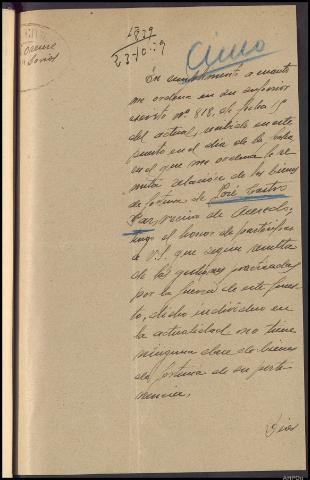 1839
23-10-9
Cinco
Orense
Lovios
En cumplimiento a cuanto
me ordena en su superior
escrito nº 818, de fecha 19
del actual, recibido en este
puesto en el dia de la fecha
en el que me ordena le re-
mita relación de los bienes
de fortuna de José Castro
vecino de Aceredo,
tengo el honor de participar
a V.S. que según resulta
de las gestiones practicadas
por la fuerza de este pues-
to, dicho individuo en
la actualidad no tiene
ninguna clase de bienes
de fortuna de su perte-
nencia.
Dios